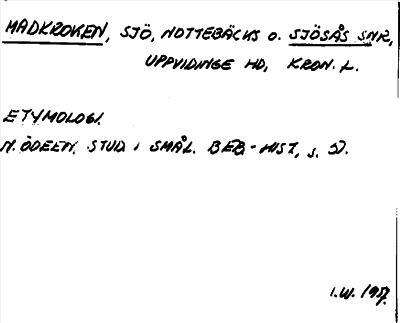 MADKROKEN, SJÖ, NOTTEBÄCKS O. SJÖSÅS SNR,
UPPVIDINGE HD, KRON. L.
ETYMOLOGI.
N. ÖDEEN, STUD I SMÅL. BEB-HIST, s.
I.W.